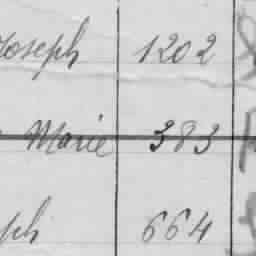 Joseph 1202
Marie 383
ph 664